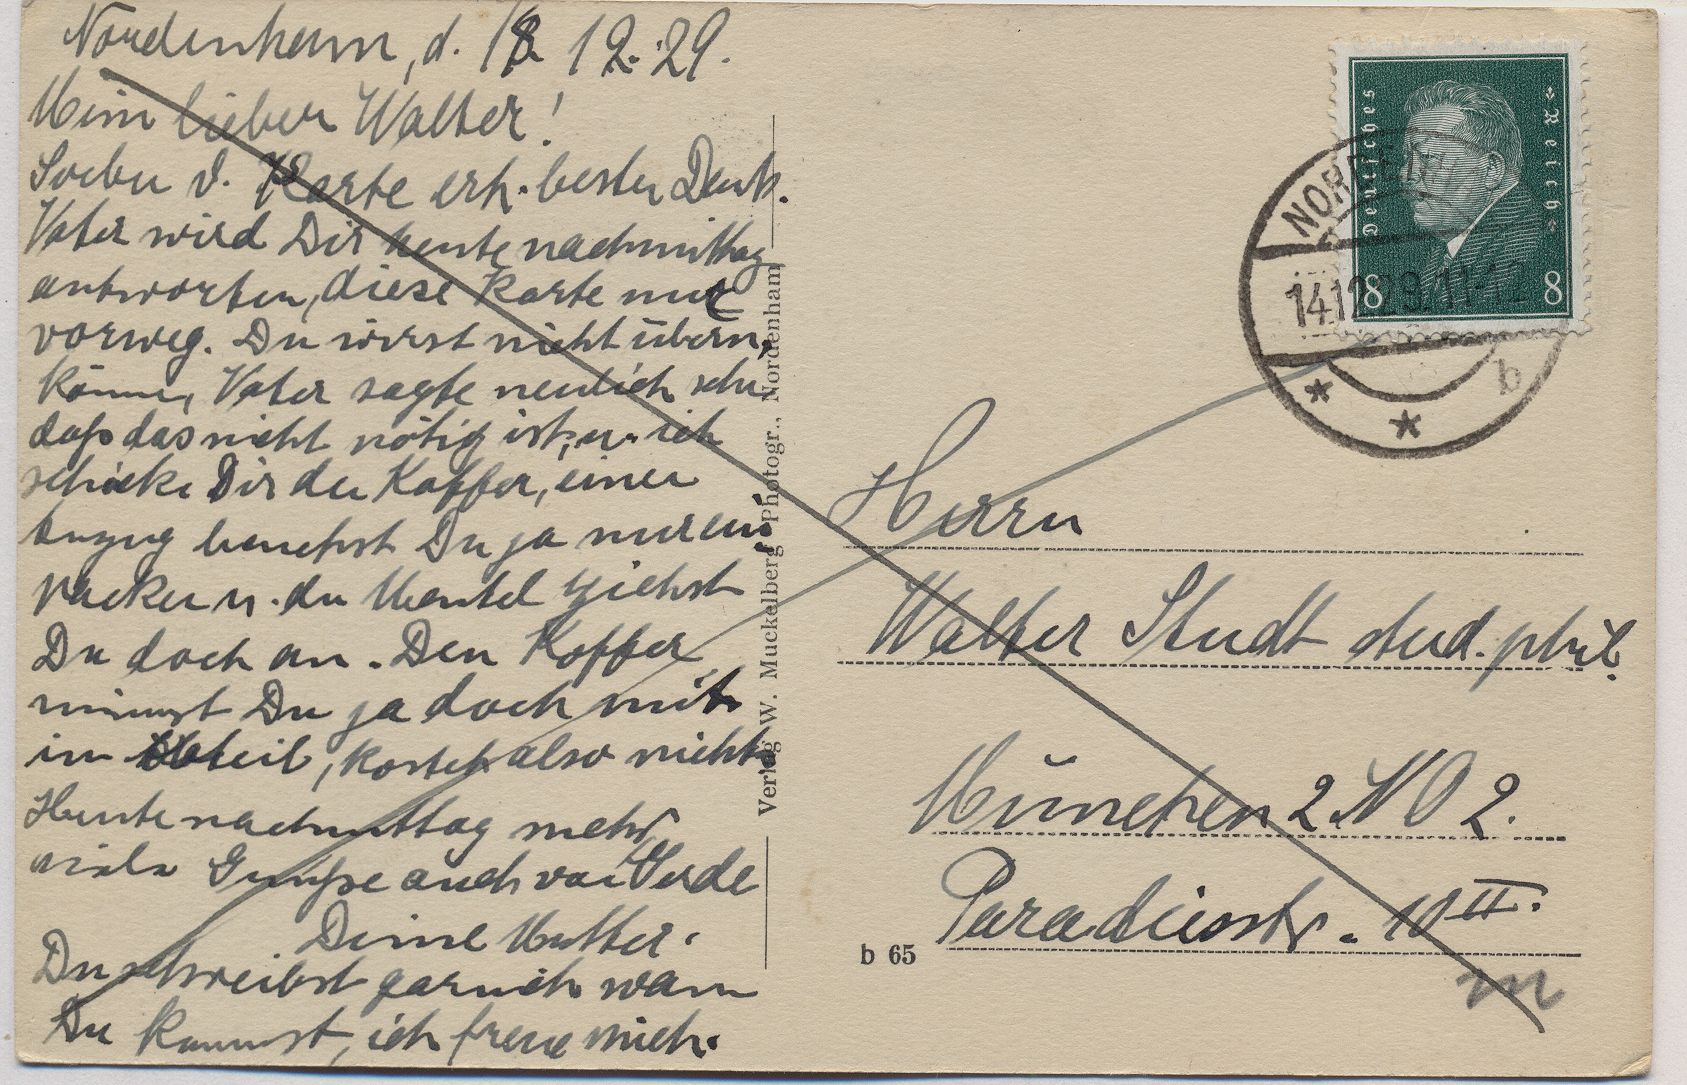 Nordenham, d. 12.29.
Mein lieber Walter!
Soeben d. Karte erh. besten Dank.
Vater wird Dir heute nachmittag
antworten, diese Karte nur
vorweg. Du wirst nicht übern.
können, Vater sagte neulich schon
daß das nicht nötig ist, u. ich
schicke Dir den Koffer, einen
Anzug benutzst Du ja nur ein
packen u. den Mantel ziehst
Du doch an. Den Koffer
nimmst Du ja doch mit
in Abteil, kostet also nichts
Heute nachmittag mehr,
viele Grüße auch von
Deine Mutter.
Du schreibst garnich wann
Du kommst, ich freue mich.
Verlag W. Muckelberg Photogr., Nordenham
Deutsches Reich
8 8
14.12.29.11-12
b
Herrn
Walter Studt stud. phil.
München 2 NO 2.
Paradiesstr. 10 II.
b 65